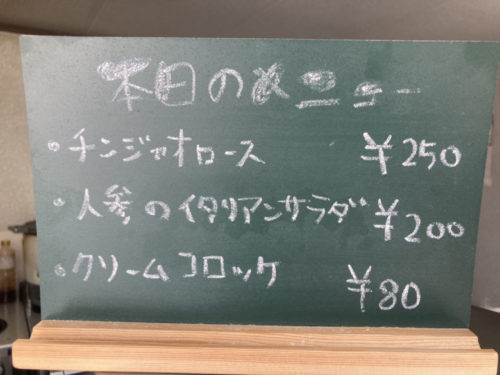 本日のメニュー
・チンジャオロース ¥250
・人参のイタリアンサラダ ¥200
・クリームコロッケ ¥80